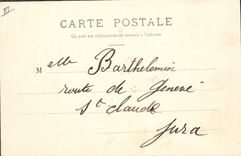 III
CARTE POSTALE
Ce côté est exclusivement réservé à l'adresse
Melle Barthelemin
route de Genève
St Claude
Jura